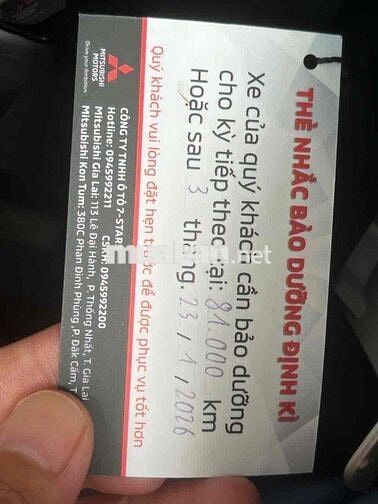 THẺ NHẮC BẢO DƯỠNG ĐỊNH KÌ
Xe của quý khách cần bảo dưỡng
cho kỳ tiếp theo tại: 81.000 km
Hoặc sau 3 tháng. 23, 1, 2026
Quý khách vui lòng đặt hẹn trước để được phục vụ tốt hơn
MITSUBISHI
MOTORS
Drive your Ambition
CÔNG TY TNHH Ô TÔ 7-STAR
Hotline: 0945992211 CSKH: 0945992200
Mitsubishi Gia Lai: 113 Lê Đại Hành, P. Thống Nhất, T. Gia Lai
Mitsubishi Kon Tum: 380C Phan Đình Phùng, P. Đăk Cấm, T.
muaban.net